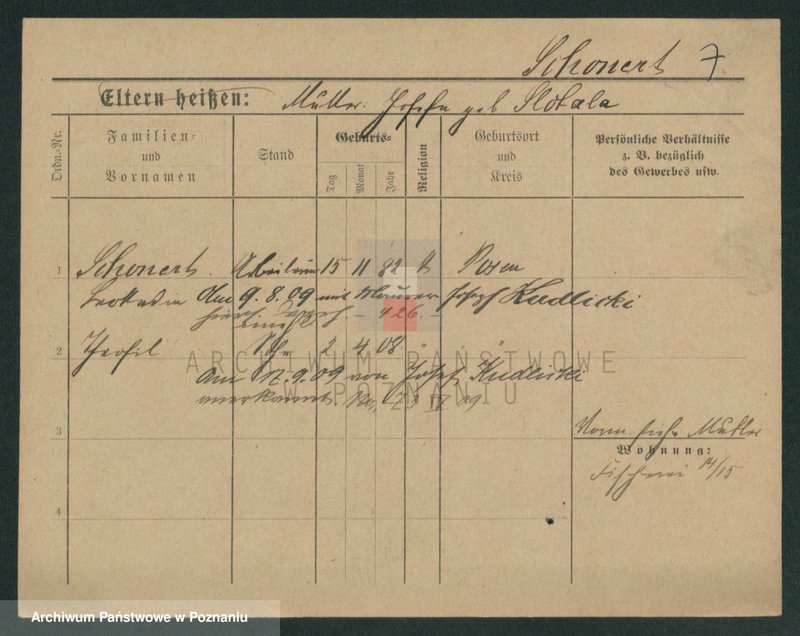 Schonert 7
Eltern heißen: Mutter: Josefa geb Slotala
Ordn.-Nr.
Familien-
und
Vornamen
Stand
Geburts-
Tag
Monat
Jahr
Religion
Geburtsort
und
Kreis
Persönliche Verhältnisse
z. B. bezüglich
des Gewerbes usw.
1 Schonert. Arbeiterin 15 11 82 k Posen
Leokadia Am 9.8.09 mit Maurer Josef Kudlicki
hier 426.
2 Theofil Sohn 2 4 08 "
Am 12.9.09 von Josef Kudlicki
anerkannt
3
Vorm. siehe Mutter
Wohnung:
Fischerei 14/15
4
ARCHIWUM PAŃSTWOWE
W POZNANIU
Archiwum Państwowe w Poznaniu